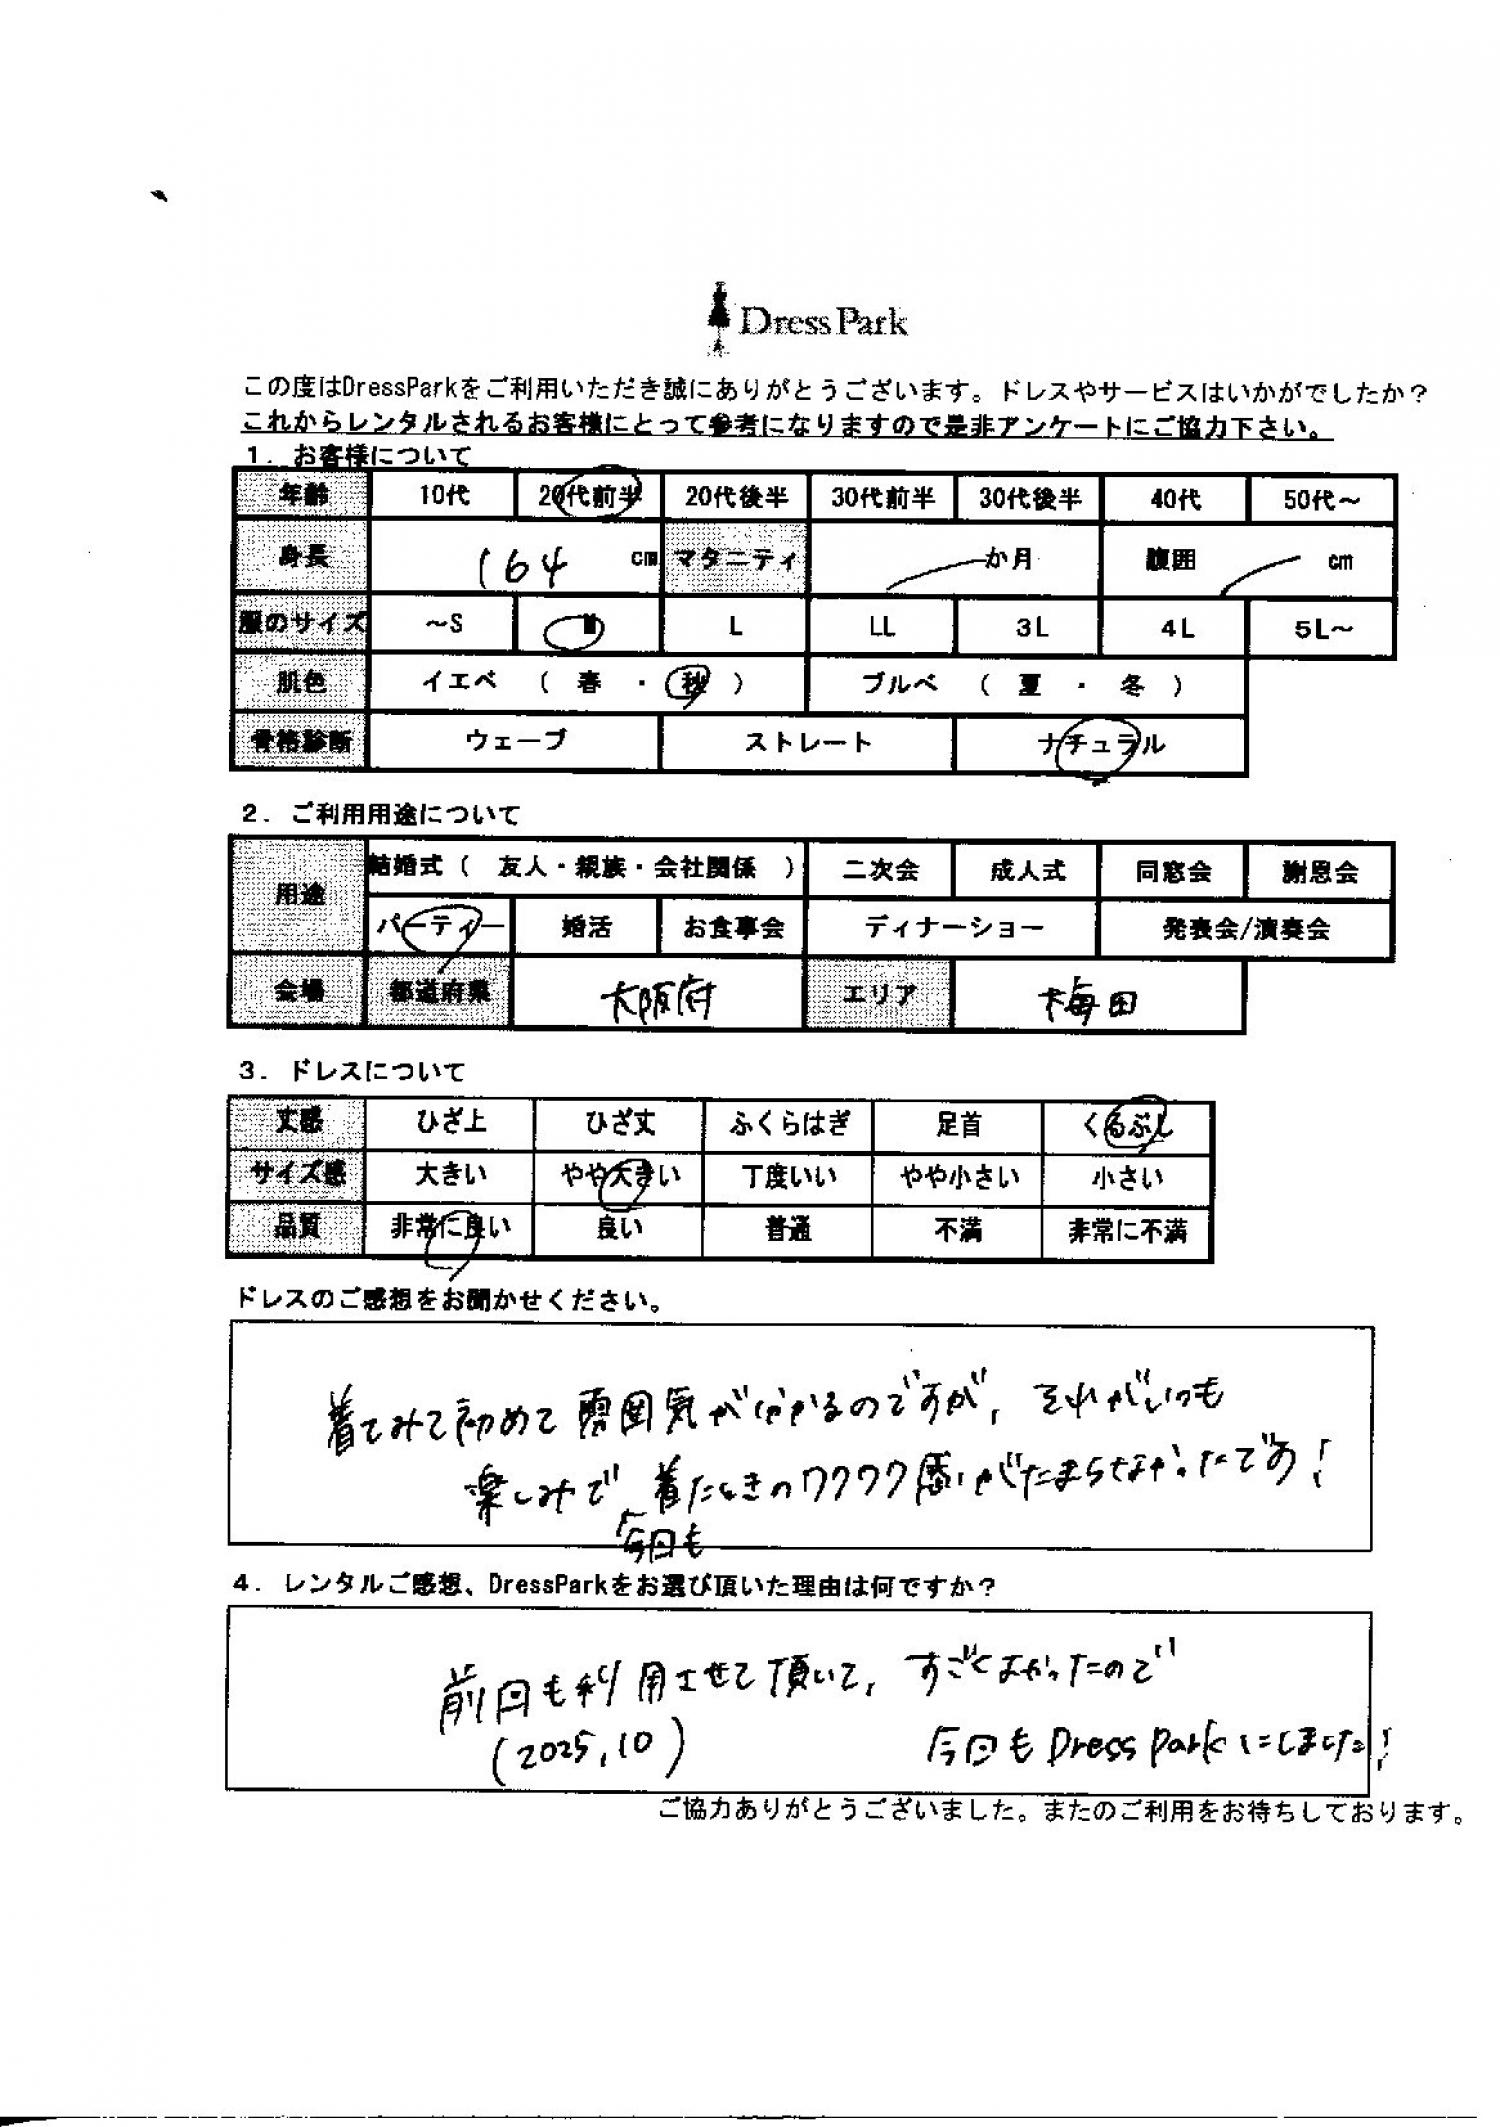 DressPark
この度はDressParkをご利用いただき誠にありがとうございます。ドレスやサービスはいかがでしたか？
これからレンタルされるお客様にとって参考になりますので是非アンケートにご協力下さい。
1．お客様について
年齢 10代 20代前半 20代後半 30代前半 30代後半 40代 50代～
身長 164 cm マタニティ か月 腹囲 cm
服のサイズ ～S M L LL 3L 4L 5L～
肌色 イエベ （ 春 ・ 秋 ） ブルベ （ 夏 ・ 冬 ）
骨格診断 ウェーブ ストレート ナチュラル
2．ご利用用途について
用途 結婚式（ 友人・親族・会社関係 ） 二次会 成人式 同窓会 謝恩会
パーティー 婚活 お食事会 ディナーショー 発表会/演奏会
会場 都道府県 大阪府 エリア 梅田
3．ドレスについて
丈感 ひざ上 ひざ丈 ふくらはぎ 足首 くるぶし
サイズ感 大きい やや大きい 丁度いい やや小さい 小さい
品質 非常に良い 良い 普通 不満 非常に不満
ドレスのご感想をお聞かせください。
着てみて初めて雰囲気が分かるのですが、それがいつも
楽しみで 着たときのワクワク感がたまらなかったです！
今回も
4．レンタルご感想、DressParkをお選び頂いた理由は何ですか？
前回も利用させて頂いて、すごくよかったので
(2025.10) 今回もDress Parkにしました！
ご協力ありがとうございました。またのご利用をお待ちしております。